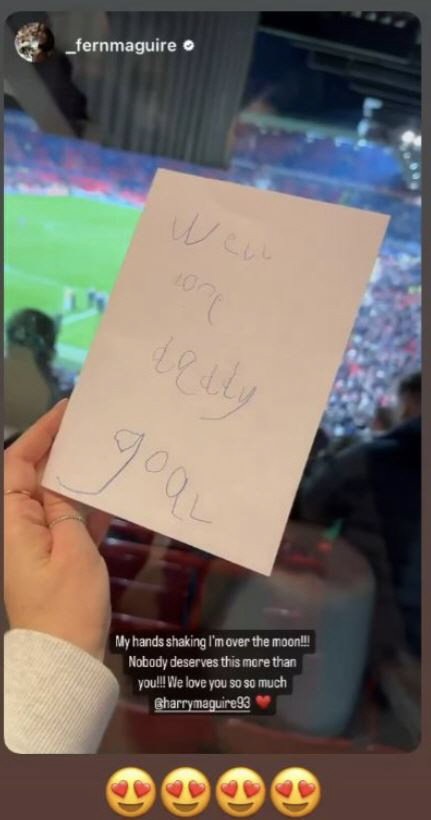 _fernmaguire
Well
done
daddy
goal
My hands shaking I'm over the moon!!!
Nobody deserves this more than
you!!! We love you so so much
@harrymaguire93 ❤️
😍😍😍😍